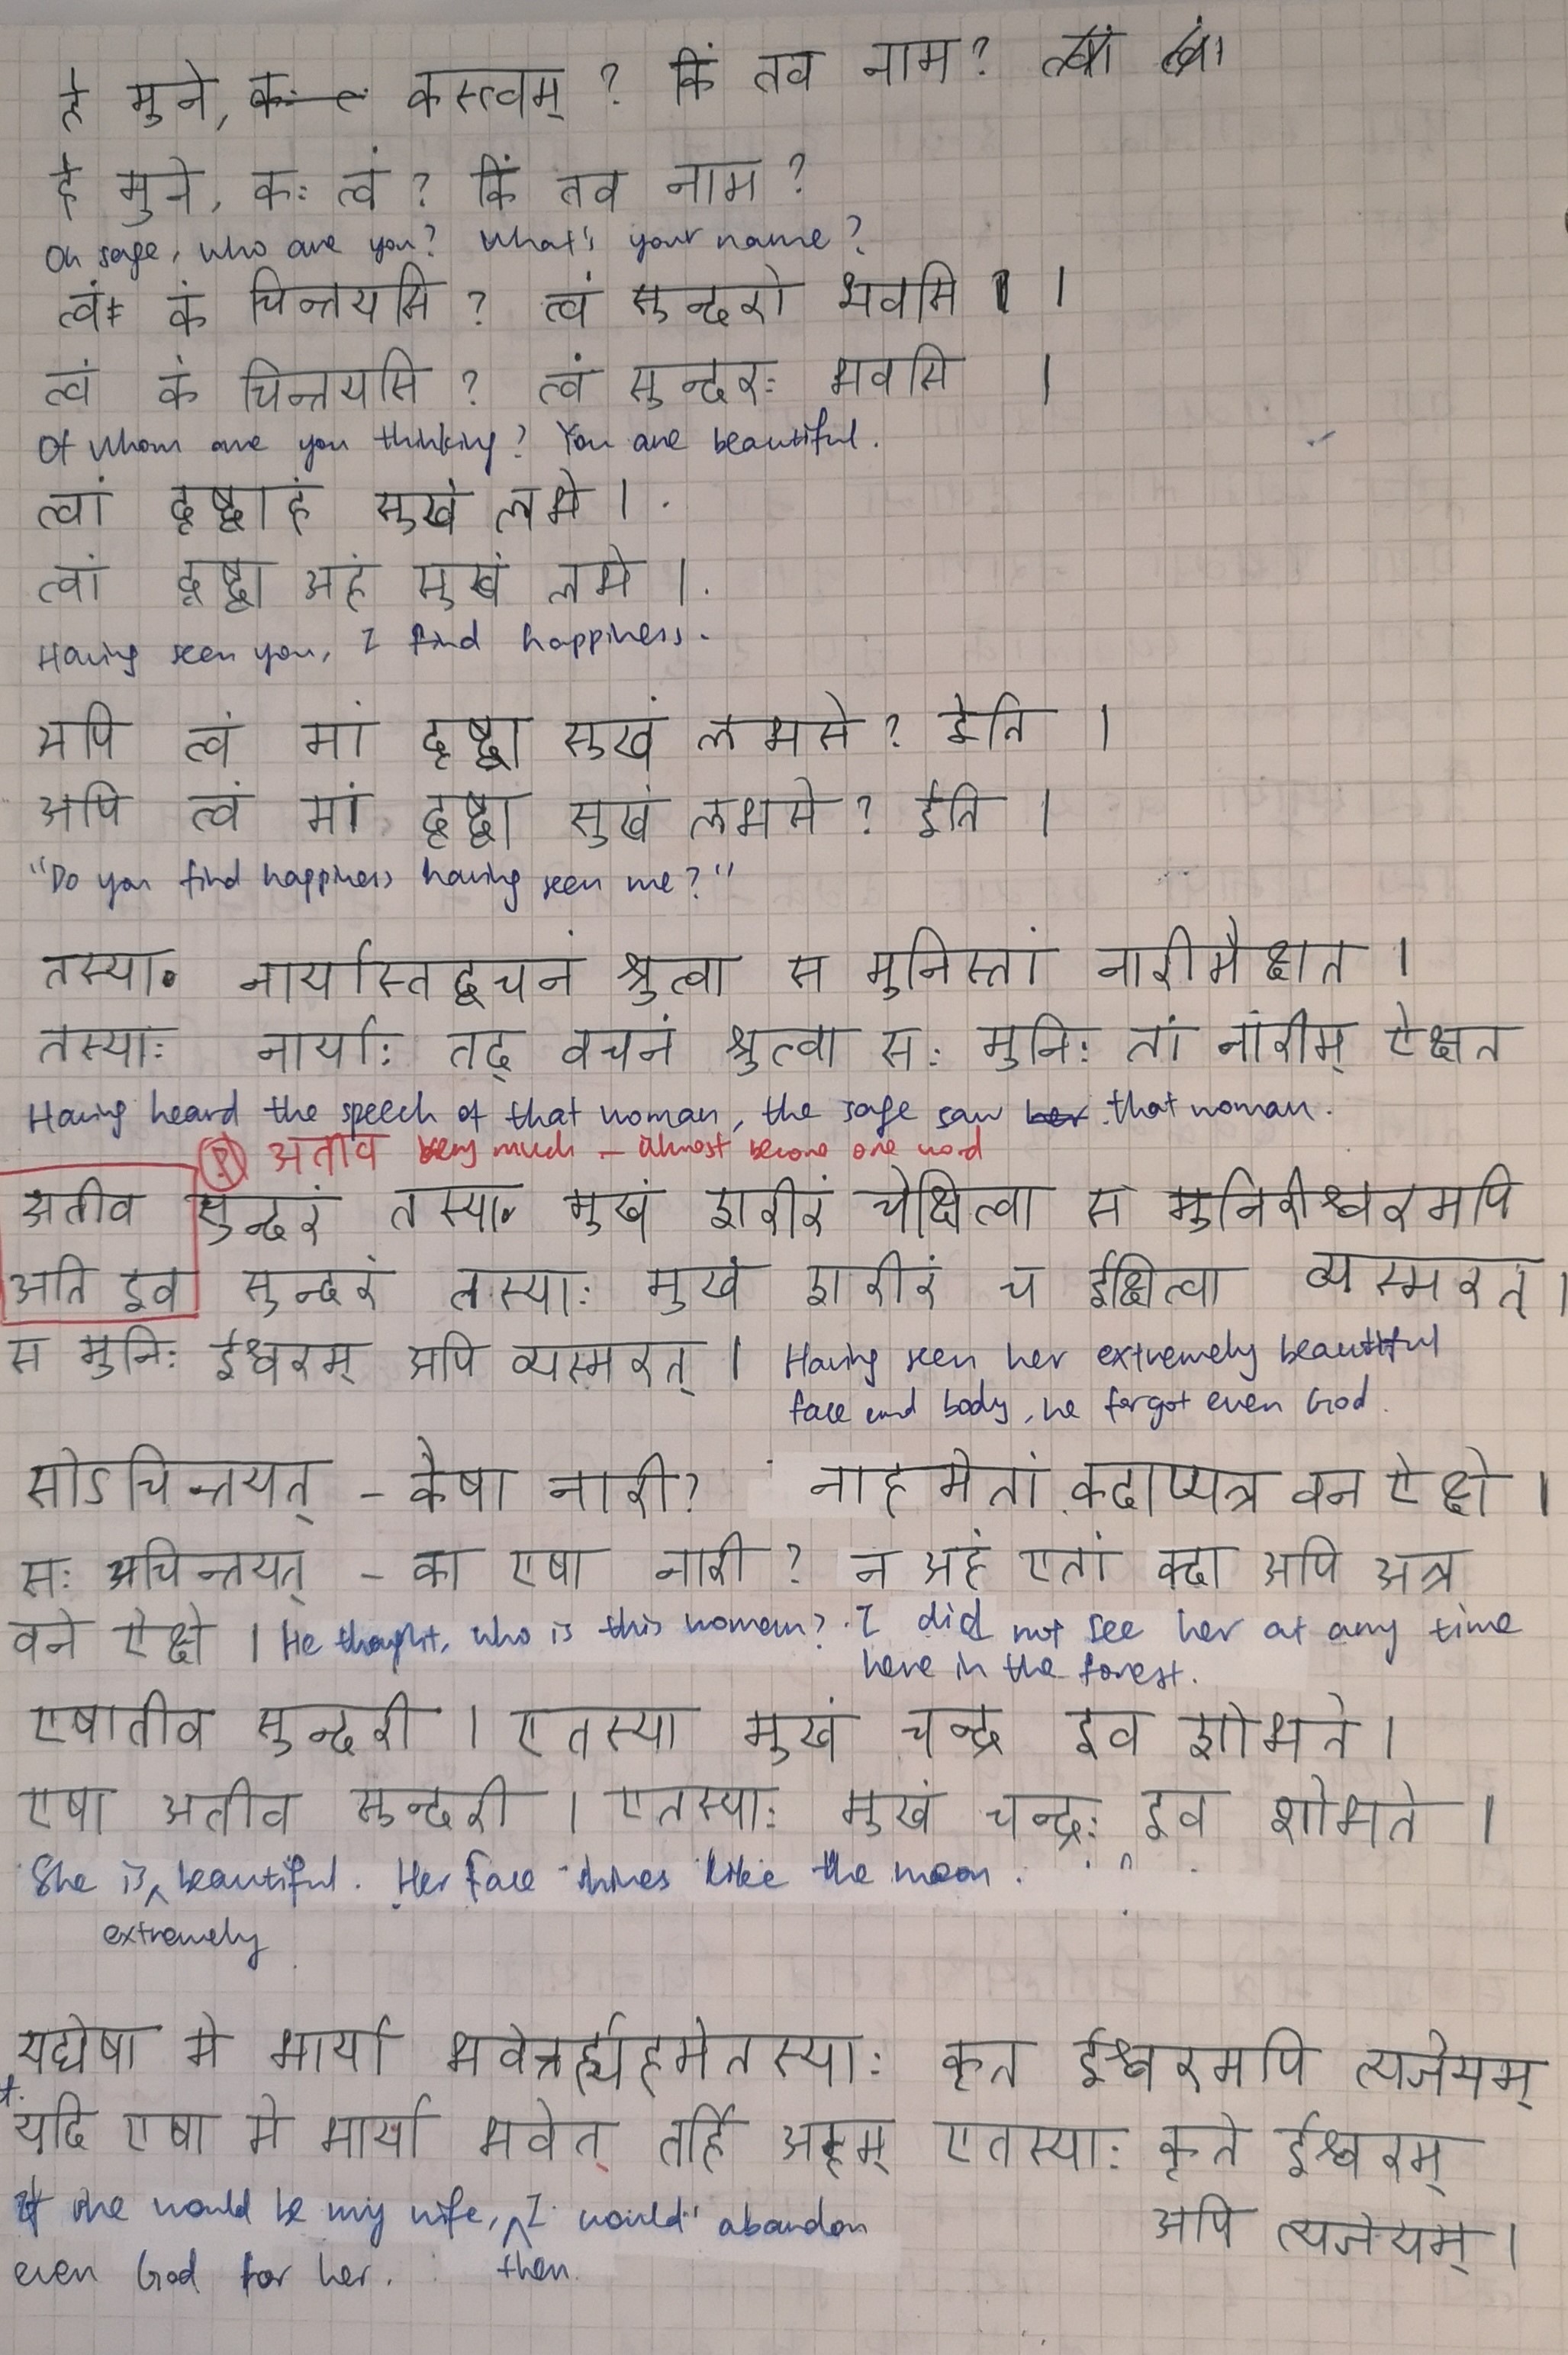 हे मुने, कस्त्वम् ? किं तव नाम ?
हे मुने, कः त्वं ? किं तव नाम ?
Oh sage, who are you? What's your name?
त्वं कं चिन्तयसि ? त्वं सुन्दरो भवसि ।
त्वं कं चिन्तयसि ? त्वं सुन्दरः भवसि ।
Of whom are you thinking? You are beautiful.
त्वां दृष्ट्वाहं सुखं लभे ।
त्वां दृष्ट्वा अहं सुखं लभे ।
Having seen you, I find happiness.
अपि त्वं मां दृष्ट्वा सुखं लभसे ? ईति ।
अपि त्वं मां दृष्ट्वा सुखं लभसे ? ईति ।
"Do you find happiness having seen me?"
तस्या. नार्यास्तद्वचनं श्रुत्वा स मुनिस्तां नारीमैक्षत ।
तस्याः नार्याः तद् वचनं श्रुत्वा सः मुनिः तां नारीम् ऐक्षत
Having heard the speech of that woman, the sage saw that woman.
अतीव very much – almost become one word
अतीव सुन्दरं तस्या. मुखं शरीरं चेक्षित्वा स मुनिरीश्वरमपि
अति इव सुन्दरं तस्याः मुखं शरीरं च ईक्षित्वा व्यस्मरत् ।
स मुनिः ईश्वरम् अपि व्यस्मरत् । Having seen her extremely beautiful
face and body, he forgot even God.
सोऽचिन्तयत् – कैषा नारी ? नाहमेतां कदाप्यत्र वन ऐक्षे ।
सः अचिन्तयत् – का एषा नारी ? न अहं एतां कदा अपि अत्र
वने ऐक्षे । He thought, who is this woman? I did not see her at any time
here in the forest.
एषातीव सुन्दरी । एतस्या मुखं चन्द्र इव शोभते ।
एषा अतीव सुन्दरी । एतस्याः मुखं चन्द्रः इव शोभते ।
She is extremely beautiful. Her face shines like the moon.
यद्येषा मे भार्या भवेत्तर्ह्यहमेतस्याः कृत ईश्वरमपि त्यजेयम्
यदि एषा मे भार्या भवेत् तर्हि अहम् एतस्याः कृते ईश्वरम्
अपि त्यजेयम् ।
If she would be my wife, then I would abandon
even God for her.